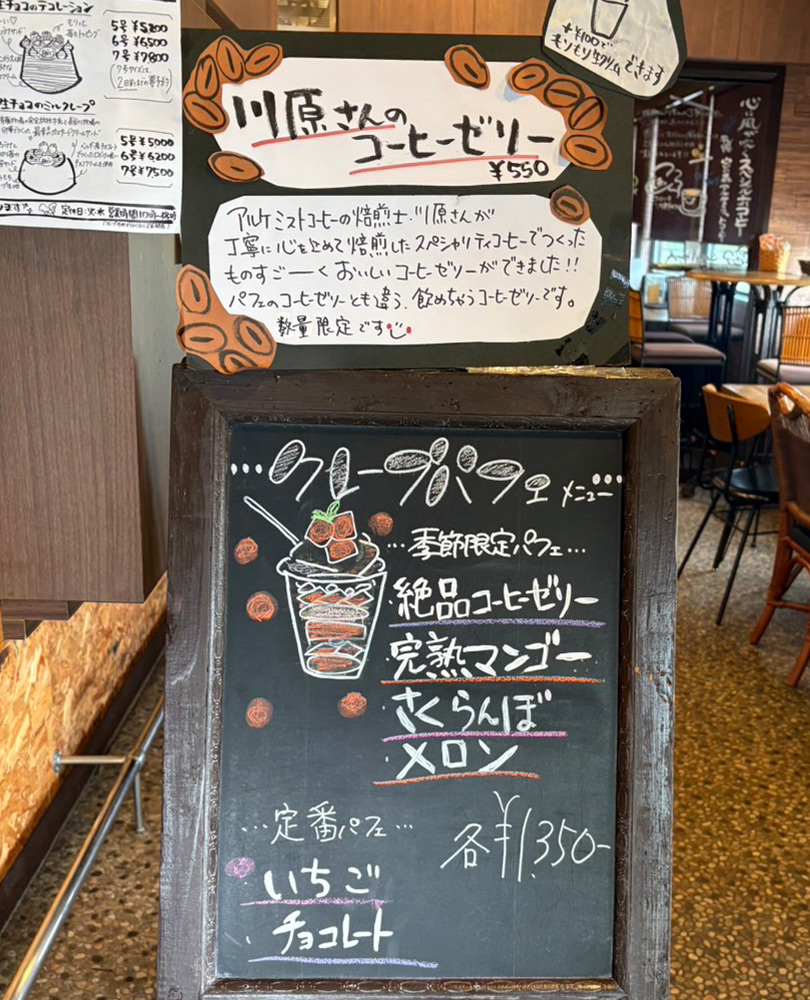 生チョコのデコレーション
5号¥5800
6号¥6500
7号¥7800
生チョコのミルクレープ
5号¥5000
6号¥6200
7号¥7500
+¥100で
モリモリ生クリームできます
川原さんの
コーヒーゼリー
¥550
アルケミストコーヒーの焙煎士、川原さんが
丁寧に心を込めて焙煎したスペシャリティコーヒーでつくった
ものすごーーくおいしいコーヒーゼリーができました!!
パフェのコーヒーゼリーとも違う、飲めちゃうコーヒーゼリーです。
数量限定です
…クレープパフェメニュー…
…季節限定パフェ…
絶品コーヒーゼリー
完熟マンゴー
さくらんぼ
メロン
…定番パフェ…
各¥1,350-
いちご
チョコレート